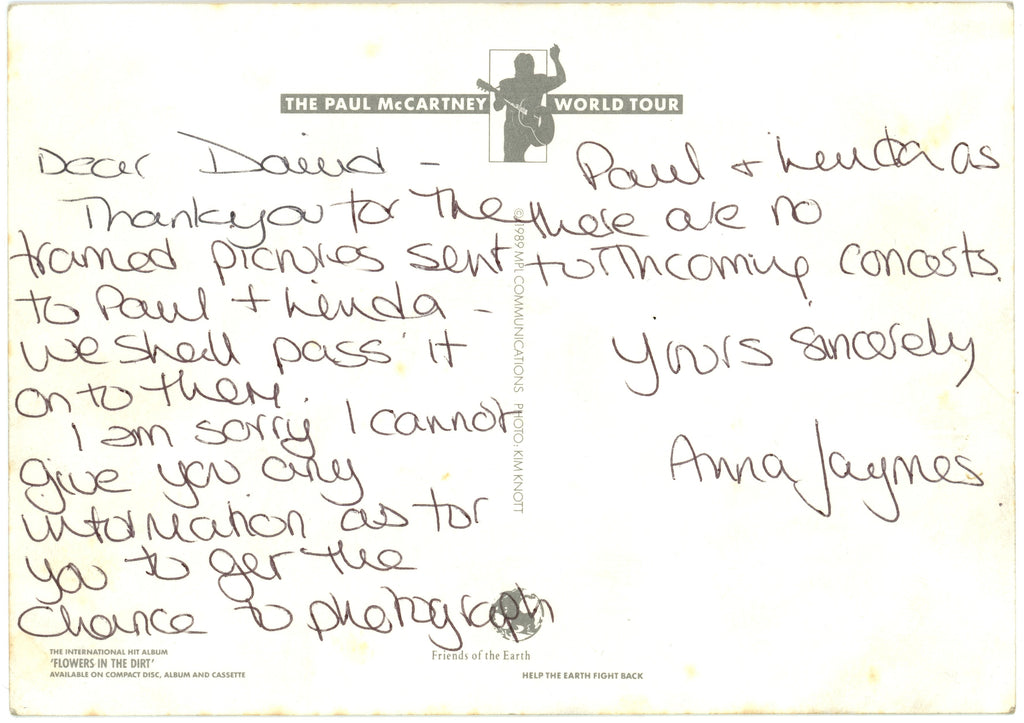 THE PAUL McCARTNEY WORLD TOUR
Dear David -
Thankyou for the
framed pictures sent
to Paul + Linda -
we shall pass it
on to them.
I am sorry I cannot
give you any
information as for
you to get the
chance to photograph
Paul + Linda as
there are no
forthcoming concerts.
Yours sincerely
Anna Jaymes
© 1989 MPL COMMUNICATIONS PHOTO: KIM KNOTT
THE INTERNATIONAL HIT ALBUM
'FLOWERS IN THE DIRT'
AVAILABLE ON COMPACT DISC, ALBUM AND CASSETTE
Friends of the Earth
HELP THE EARTH FIGHT BACK